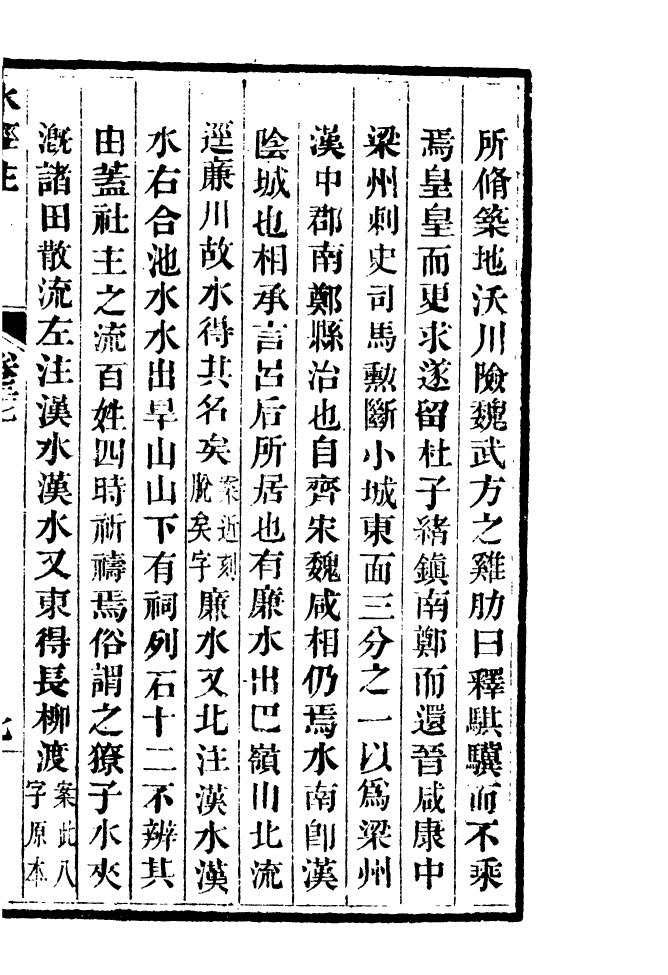 所脩築地沃川險魏武方之雞肋曰釋騏驥而不乘
焉皇皇而更求遂留杜子緒鎮南鄭而還晉咸康中
梁州刺史司馬勲斷小城東面三分之一以爲梁州
漢中郡南鄭縣治也自齊宋魏咸相仍焉水南卽漢
陰城也相承言呂后所居也有廉水出巴嶺山北流
逕廉川故水得其名矣案近刻脫矣字廉水又北注漢水漢
水右合池水水出旱山山下有祠列石十二不辨其
由蓋社主之流百姓四時祈禱焉俗謂之獠子水夾
漑諸田散流左注漢水漢水又東得長柳渡案此八字原本
水經注